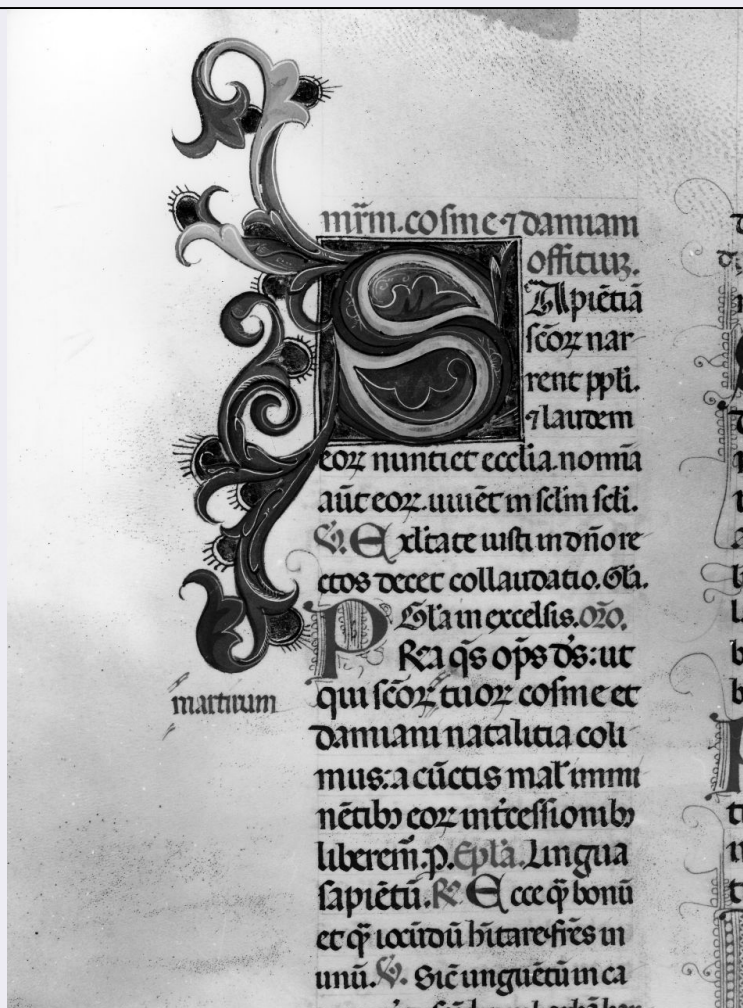 mr̄m. cosme ⁊ damiani
officiuꝫ.
SApiētiā
scōꝝ nar
rent ppl̄i.
⁊ laudem
eoꝝ nuntiet ecclia. nomīa
aūt eoꝝ. uiuēt in sclm̄ scl̄i.
℣. Exl̄tate iusti in dn̄o re
ctos decet collaudatio. Gl̄a.
Gl̄a in excelsis. Or̄o.
PRea q̄s op̄s d̄s: ut
qui scōꝝ tuoꝝ cosme et
martirum
damiani natalitia coli
mus: a cūctis mal̄ immi
nētibꝫ eoꝝ int̄cessionibꝫ
liberem̄. p. Epl̄a. Lingua
sapiētū. ℟. Ecce q̄ bonū
et q̄ iocūdū h̄itare fr̄es in
unū. ℣. Sic̄ unguētū in ca